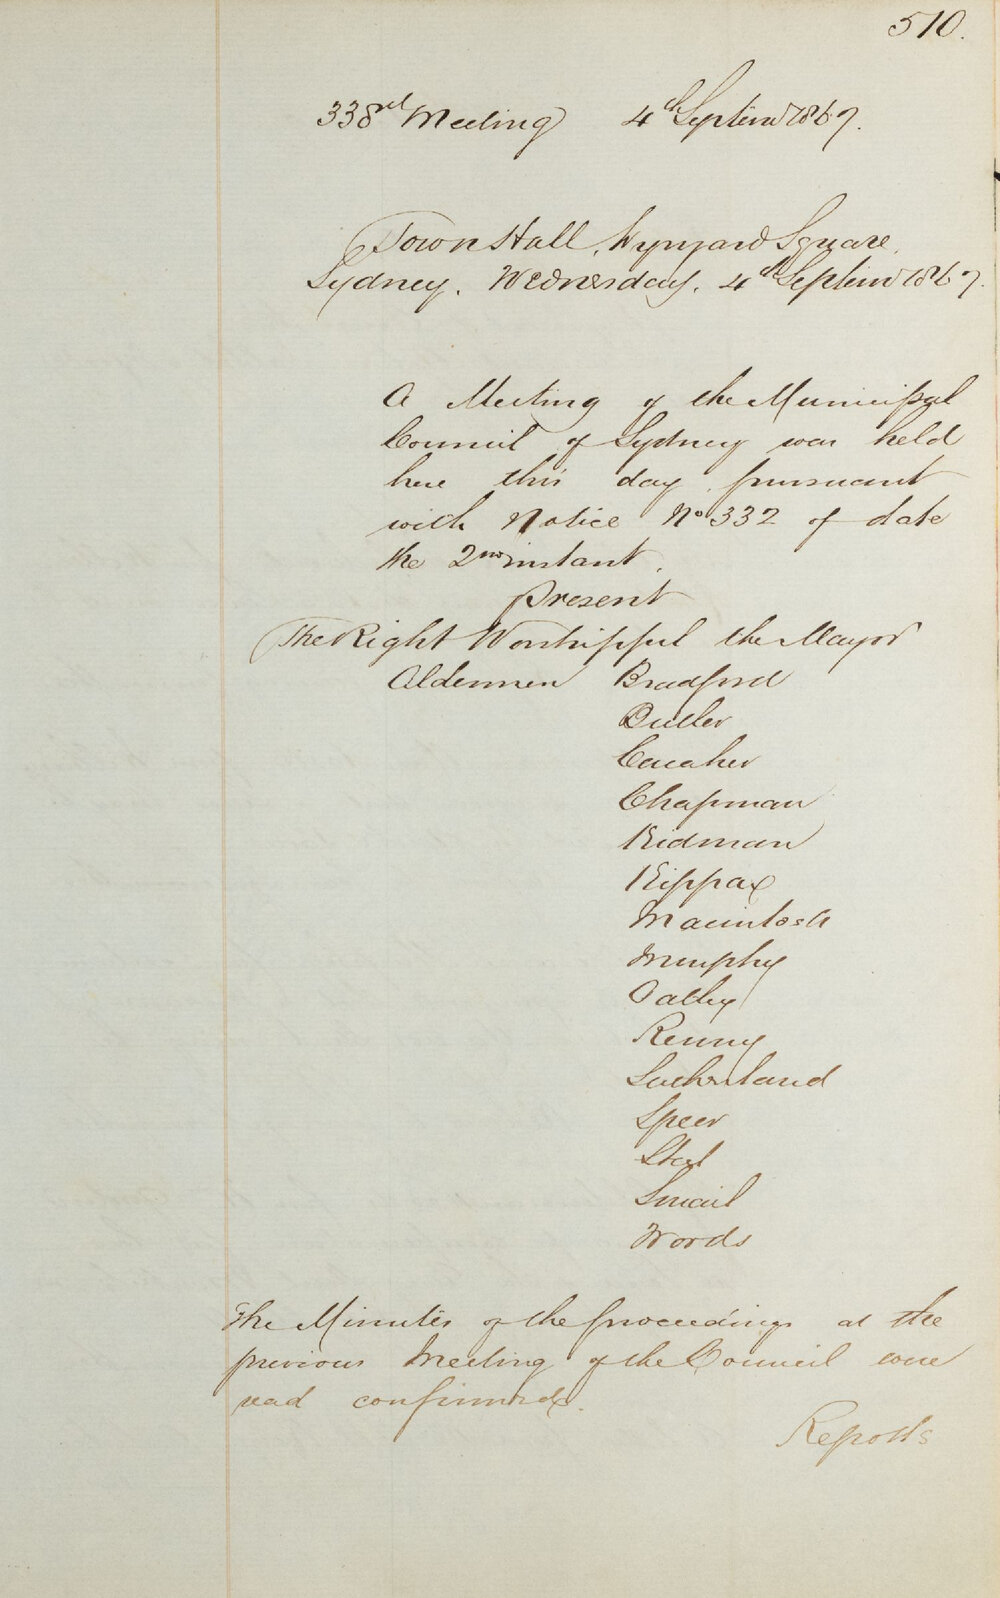 510.
338rd Meeting 4th Septem 1867.
Town Hall, Wynyard Square,
Sydney, Wednesday, 4th Septem 1867.
A Meeting of the Municipal
Council of Sydney was held
here this day pursuant
with Notice No 332 of date
the 2nd instant.
Present
The Right Worshipful the Mayor
Aldermen Bradford
Butler
Caraher
Chapman
Kidman
Kippax
Macintosh
Murphy
Oatley
Renny
Sutherland
Speer
Steel
Smail
Woods
The Minutes of the proceedings at the
previous Meeting of the Council were
read confirmed.
Reports